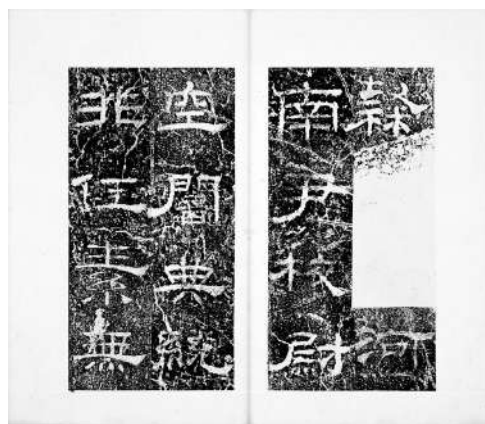 隸河
南尹校尉
空闇典統
非任素無